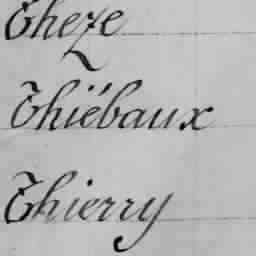 Theze
Thiébaux
Thierry